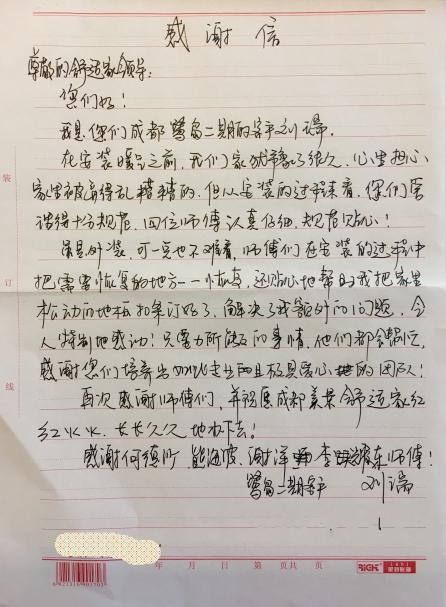 感谢信
尊敬的舒适家领导:
您们好!
我是您们成都鹭岛二期的客户刘瑞.
在安装暖气之前,我们家犹豫了很久,心里担心
家里被弄得乱糟糟的.但从安装的过程来看,您们
得十分规范,四位师傅认真仔细,规范贴心!
虽是外装,可一点也不难看,师傅们在安装的过程中
把需要恢复的地方一一恢复,还贴心地帮助我把家里
松动的地板扣条订好了,解决了我额外的问题,令
人特别地感动!只要力所能及的事情,他们都会帮忙,
感谢您们培养出如此专业而且极具爱心的团队!
再次感谢师傅们,并祝愿成都美景舒适家红
红火火,长长久久地办下去!
感谢何德所 熊海波、谢洋 李 东师傅!
鹭岛二期客户 刘瑞
装
订
线
年 月 日 第 页共 页
6921316901703